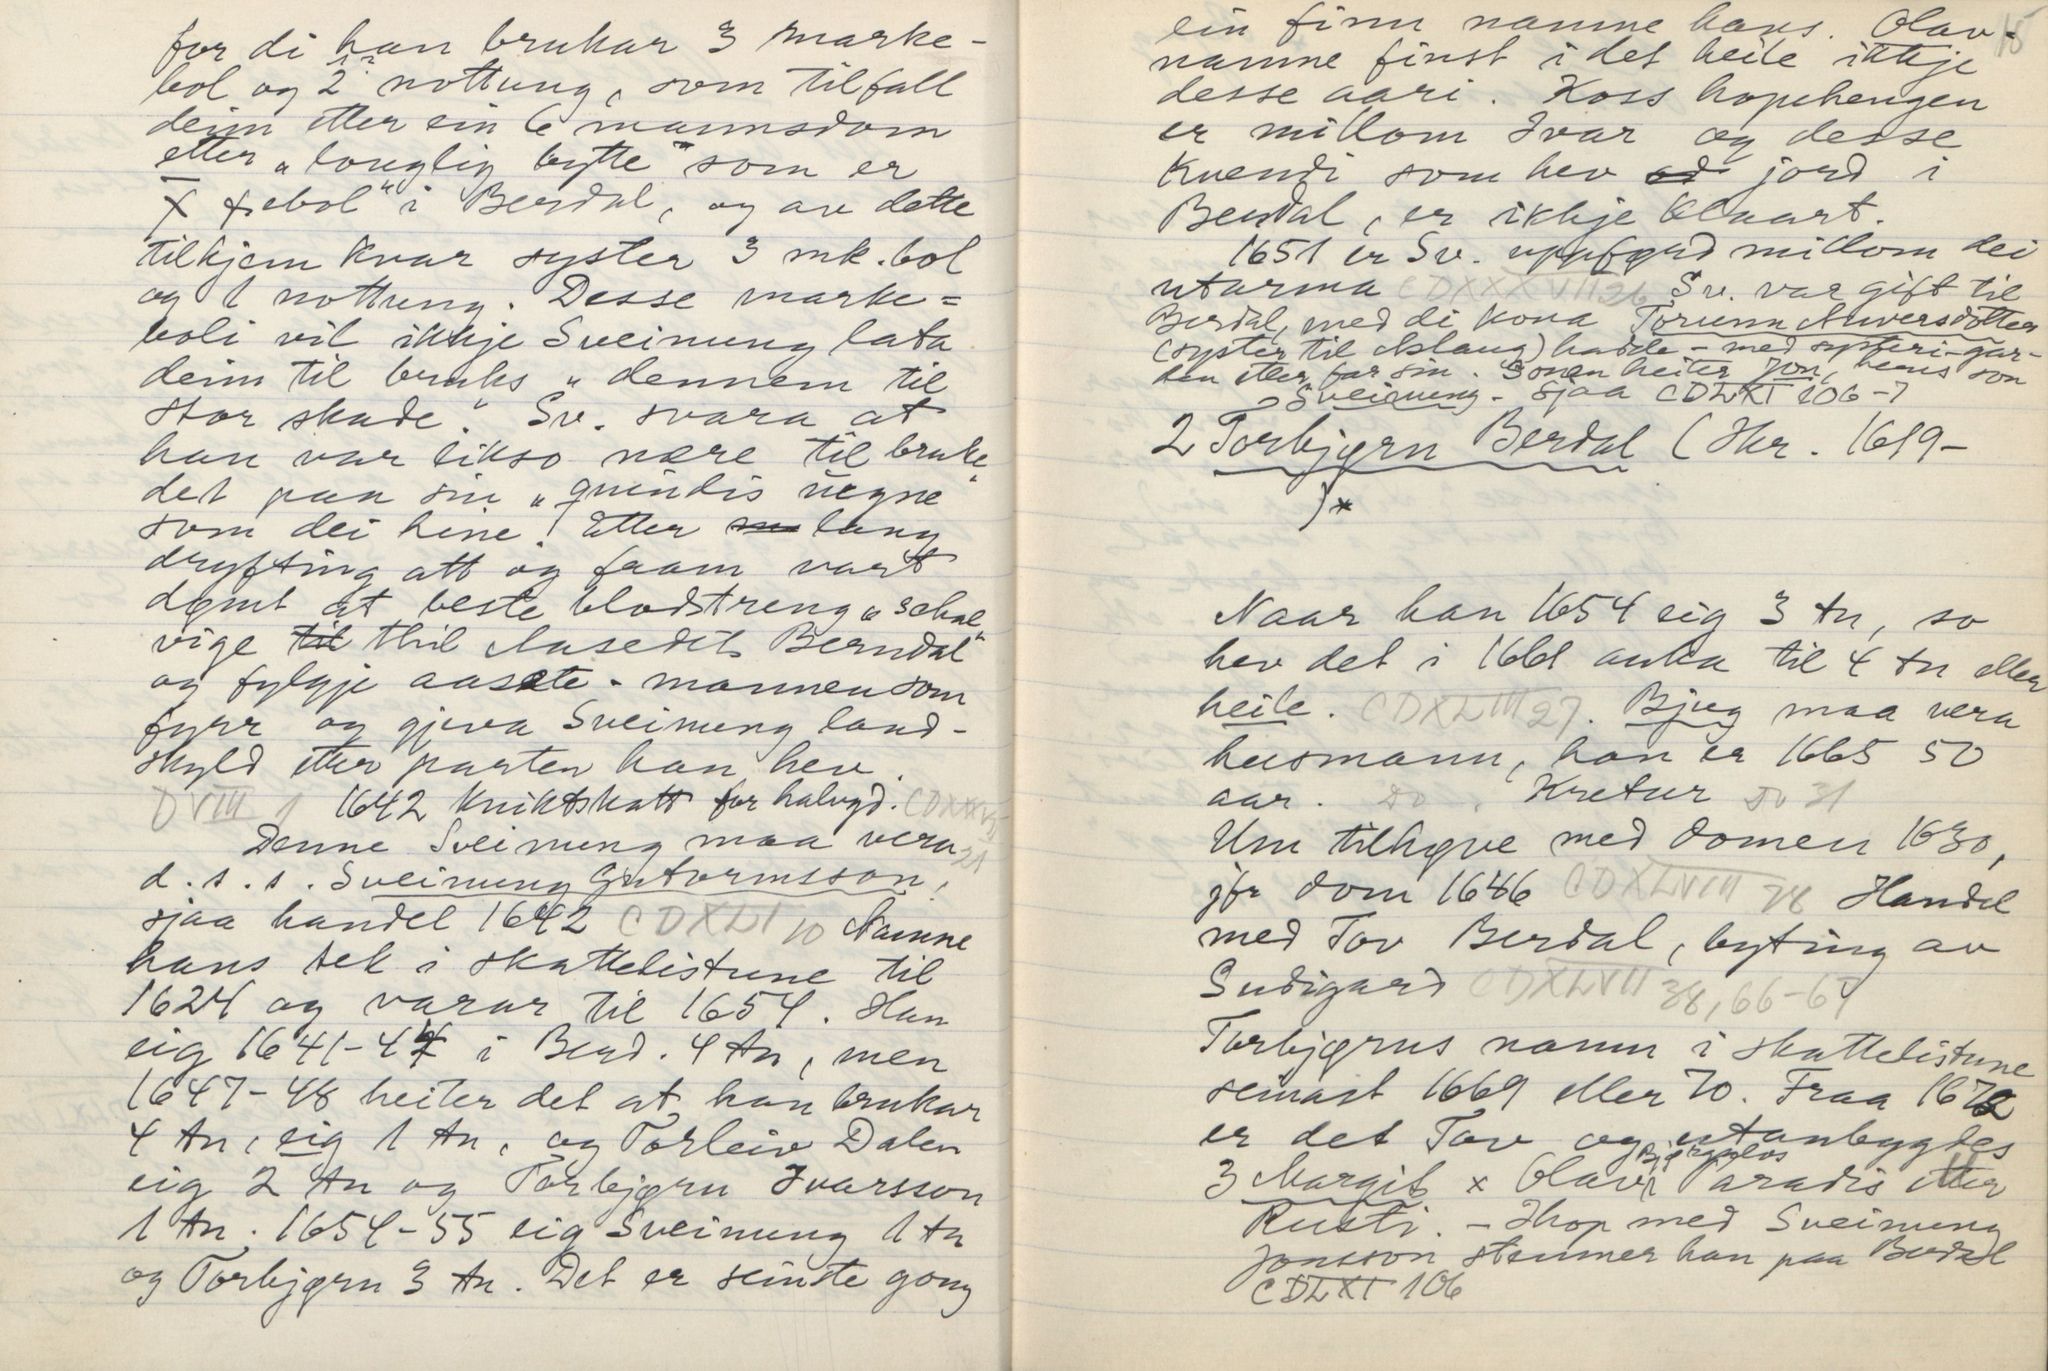 for di han brukar 3 marke-
bol og 2 nottung, som tilfall
deim etter ein 6 mannsdom
etter „louglig bytte" som er
"i Berdal, og av dette
tilkjem kvar syster 3 mk.bol
og 1 nottung. Desse marke=
boli vil ikkje Sveinung lata
deim til bruks „dennem til
stor skade". Sv. svara at
han var likso nære til „bruke
det paa sin „quindis vegne"
som dei hine! Etter lang
dryfting att og fram vart
dømt at beste blodstreng „schal
vige til thil Aasedet Berndal"
og fylgje aasete-mannen som
fyrr og gjeva Sveinung land-
skyld etter parten han hev.
DVIII 1 1642 kniktskatt for halvgd. CDXXXVII
21
Denne Sveinung maa vera
d.s.s. Sveinung Gutormsson,
sjaa handel 1642 CDXLI 10 Namne
hans tek i skattelistune til
1624 og varar til 1654. Han
eig 1641-44 i Berd. 4 tn, men
1647-48 heiter det at han brukar
4 tn, eig 1 tn, og Torleiv Dalen
eig 2 tn og Torbjørn Ivarsson
1 tn. 1654-55 eig Sveinung 1 tn
og Torbjørn 3 tn. Det er seinste gong
15
ein finn namne hans. Olav-
namne finst i det heile ikkje
desse aari. Koss hopehengen
er millom Ivar og desse
kvendi som hev jord i
Berdal, er ikkje klaart.
1651 er Sv. uppførd millom dei
utarma CDXXXVII 26 Sv. var gift til
Berdal, med di kona Torunn Alversdotter
(syster til Aslaug) hadde - med systeri - gar-
den etter far sin. Sonen heiter Jon, hans son
Sveinung. Sjaa CDLXI 106-7
2 Torbjørn Berdal (Ikr. 1619-
)*
Naar han 1654 eig 3 tn, so
hev det i 1661 auka til 4 tn eller
heile. CDXLIII 27. Bjug maa vera
husmann, han er 1665 50
aar. Do. Kretur Do 31
Um tilhøve med domen 1630,
jfr dom 1646 CDXLVIII 28 Handel
med Tov Berdal, byting av
Sudigard CDXLVII 38, 66-67
Torbjørns namn i skattelistune
seinast 1669 eller 70. Fraa 1672
er det Tov og utanbygdes
Bjørgulvs
3 Margit x Olav Paradis etter
Rusti. - Ihop med Sveinung
Jonsson stemner han paa Berdal
CDLXI 106